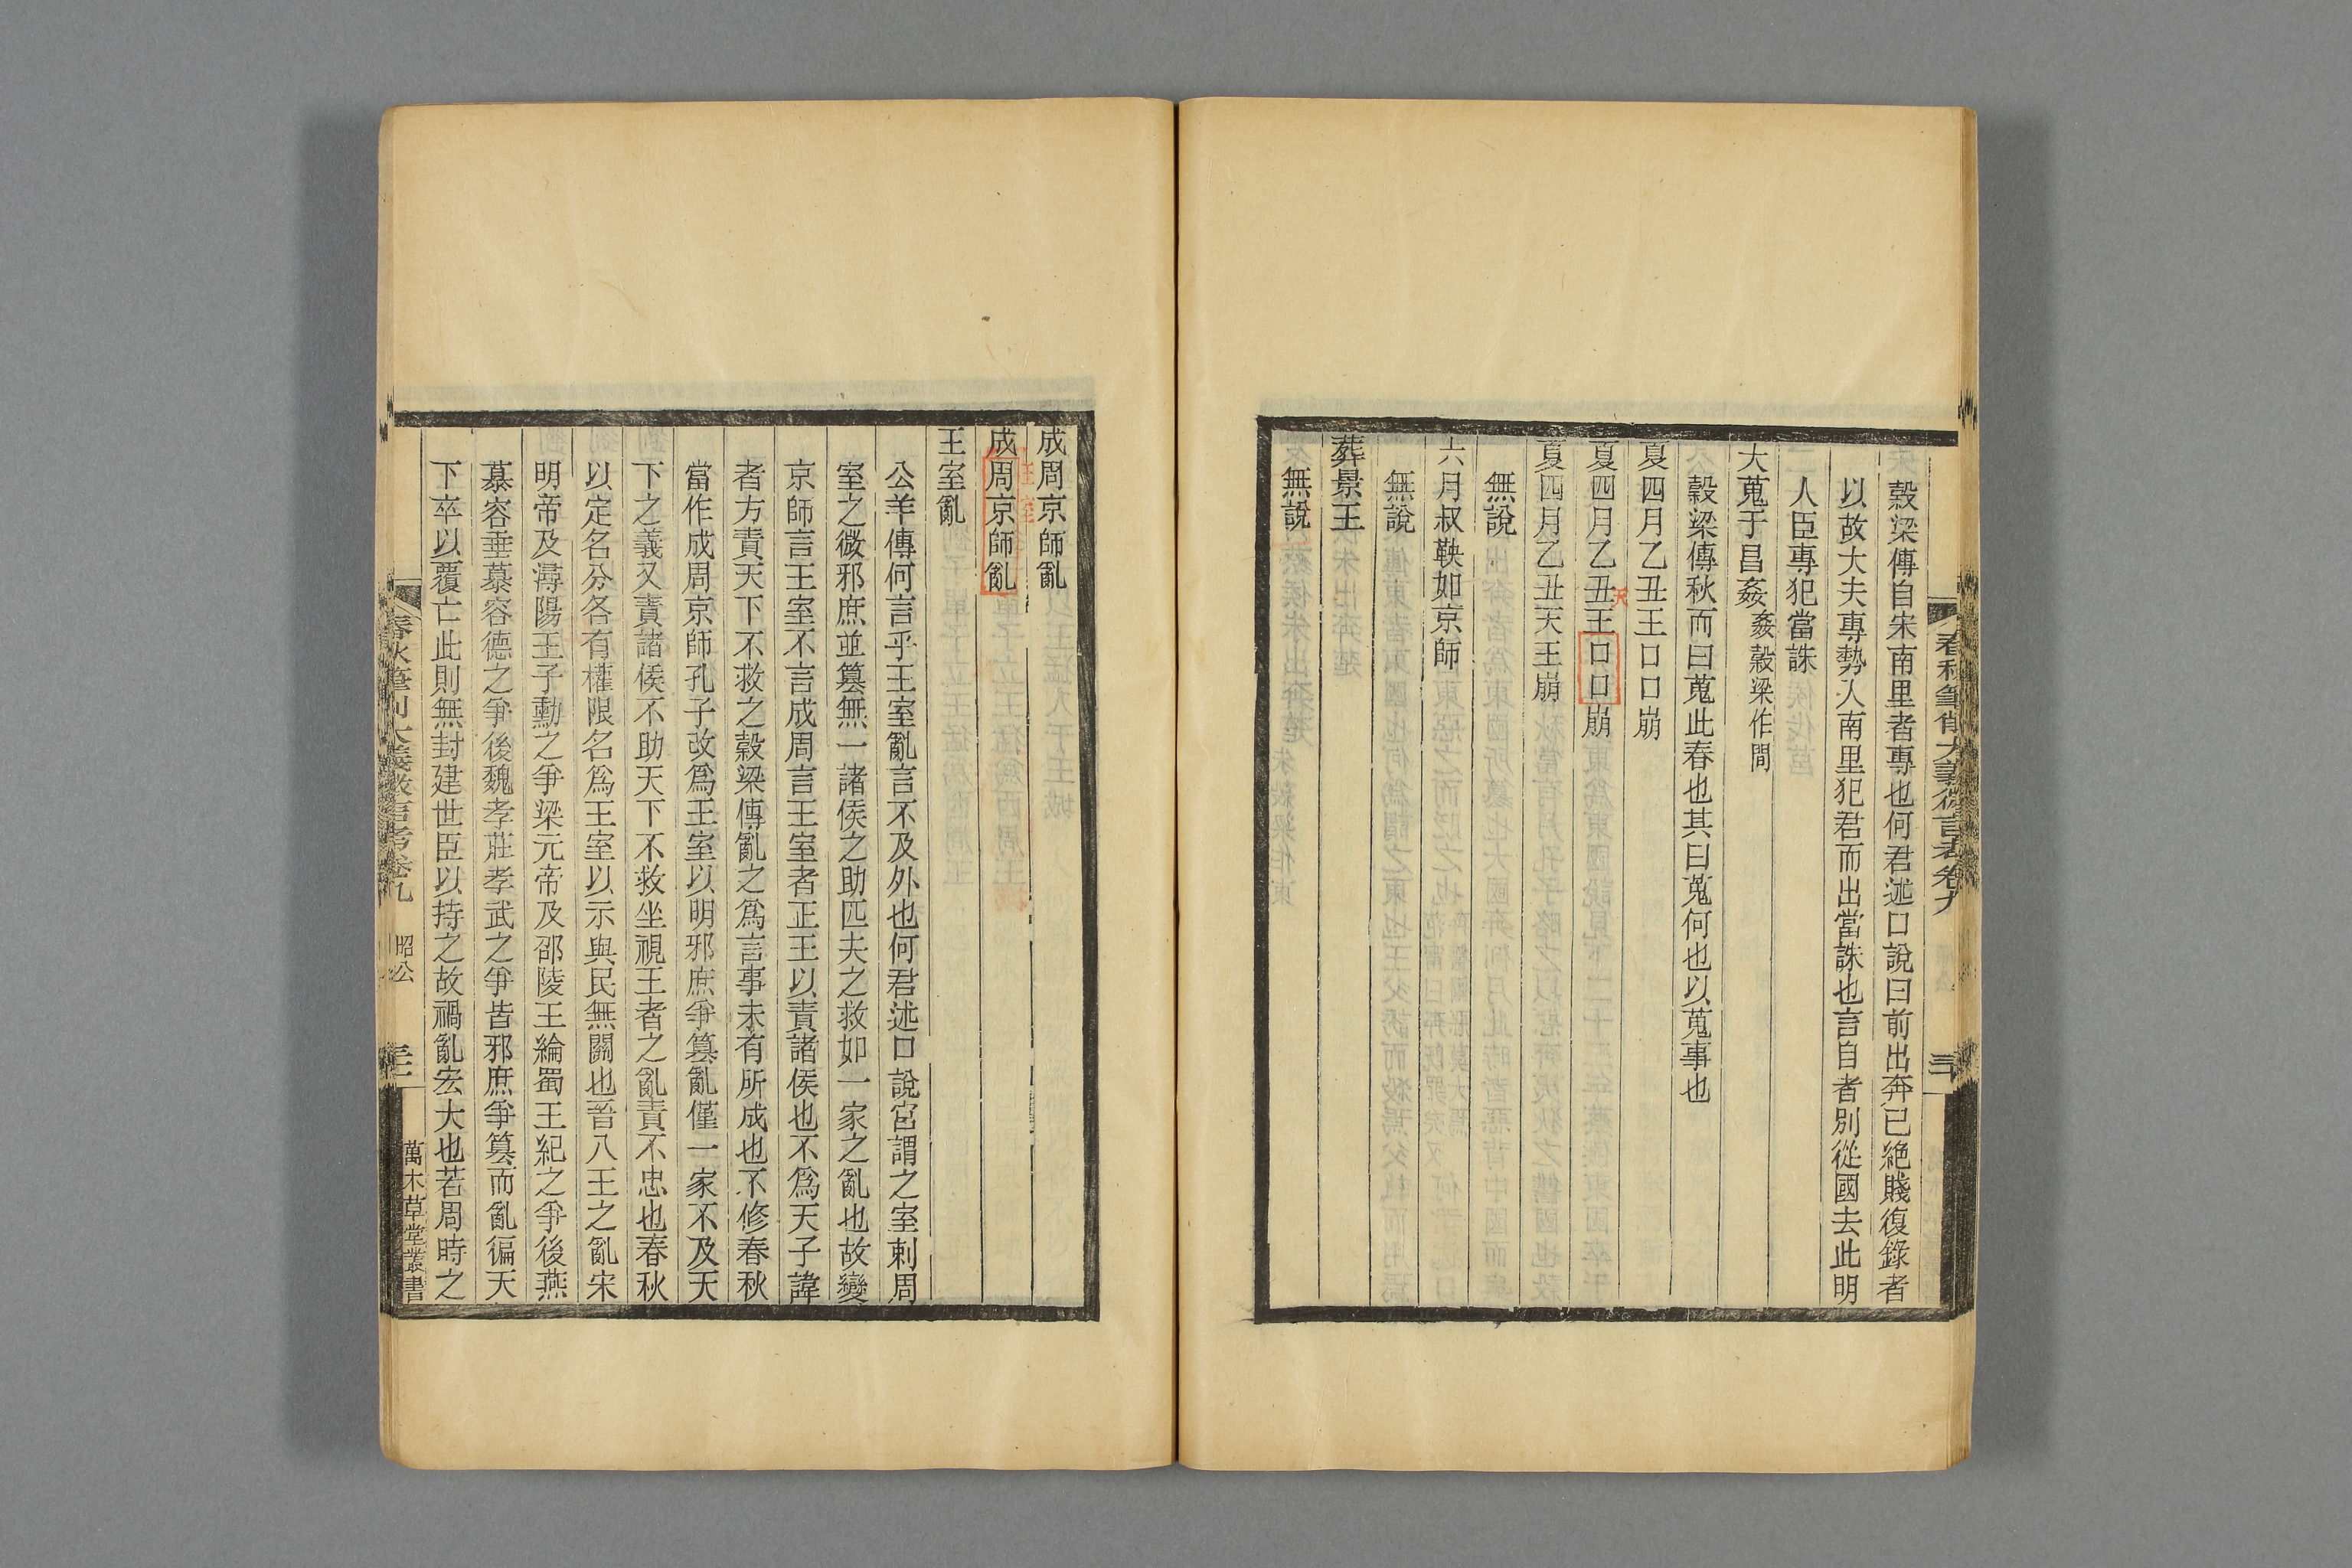 春秋筆削大義微言考卷九
三十
穀梁傳自宋南里者專也何君述口說曰前出奔已絕賤復錄者
以故大夫專勢入南里犯君而出當誅也言自者別從國去此明
人臣專犯當誅
大蒐于昌姦姦穀梁作間
穀梁傳秋而曰蒐此春也其曰蒐何也以蒐事也
夏四月乙丑王口口崩
夏四月乙丑王口口崩
天
夏四月乙丑天王崩
無說
六月叔鞅如京師
無說
葬景王
無說
成周京師亂
成周京師亂
王室
王室亂
公羊傳何言乎王室亂言不及外也何君述口說宮謂之室刺周
室之微邪庶並篡無一諸侯之助匹夫之救如一家之亂也故變
京師言王室不言成周言王室者正王以責諸侯也不為天子諱
者方責天下不救之穀梁傳亂之為言事未有所成也不修春秋
當作成周京師孔子改為王室以明邪庶爭篡亂僅一家不及天
下之義又責諸侯不助天下不救坐視王者之亂責不忠也春秋
以定名分各有權限名為王室以示與民無關也晉八王之亂宋
明帝及潯陽王子勳之爭梁元帝及邵陵王綸蜀王紀之爭後燕
慕容垂慕容德之爭後魏孝莊孝武之爭皆邪庶爭篡而亂徧天
下卒以覆亡此則無封建世臣以持之故禍亂宏大也若周時之
春秋筆削大義微言考卷九
昭公
三十一
萬木草堂叢書